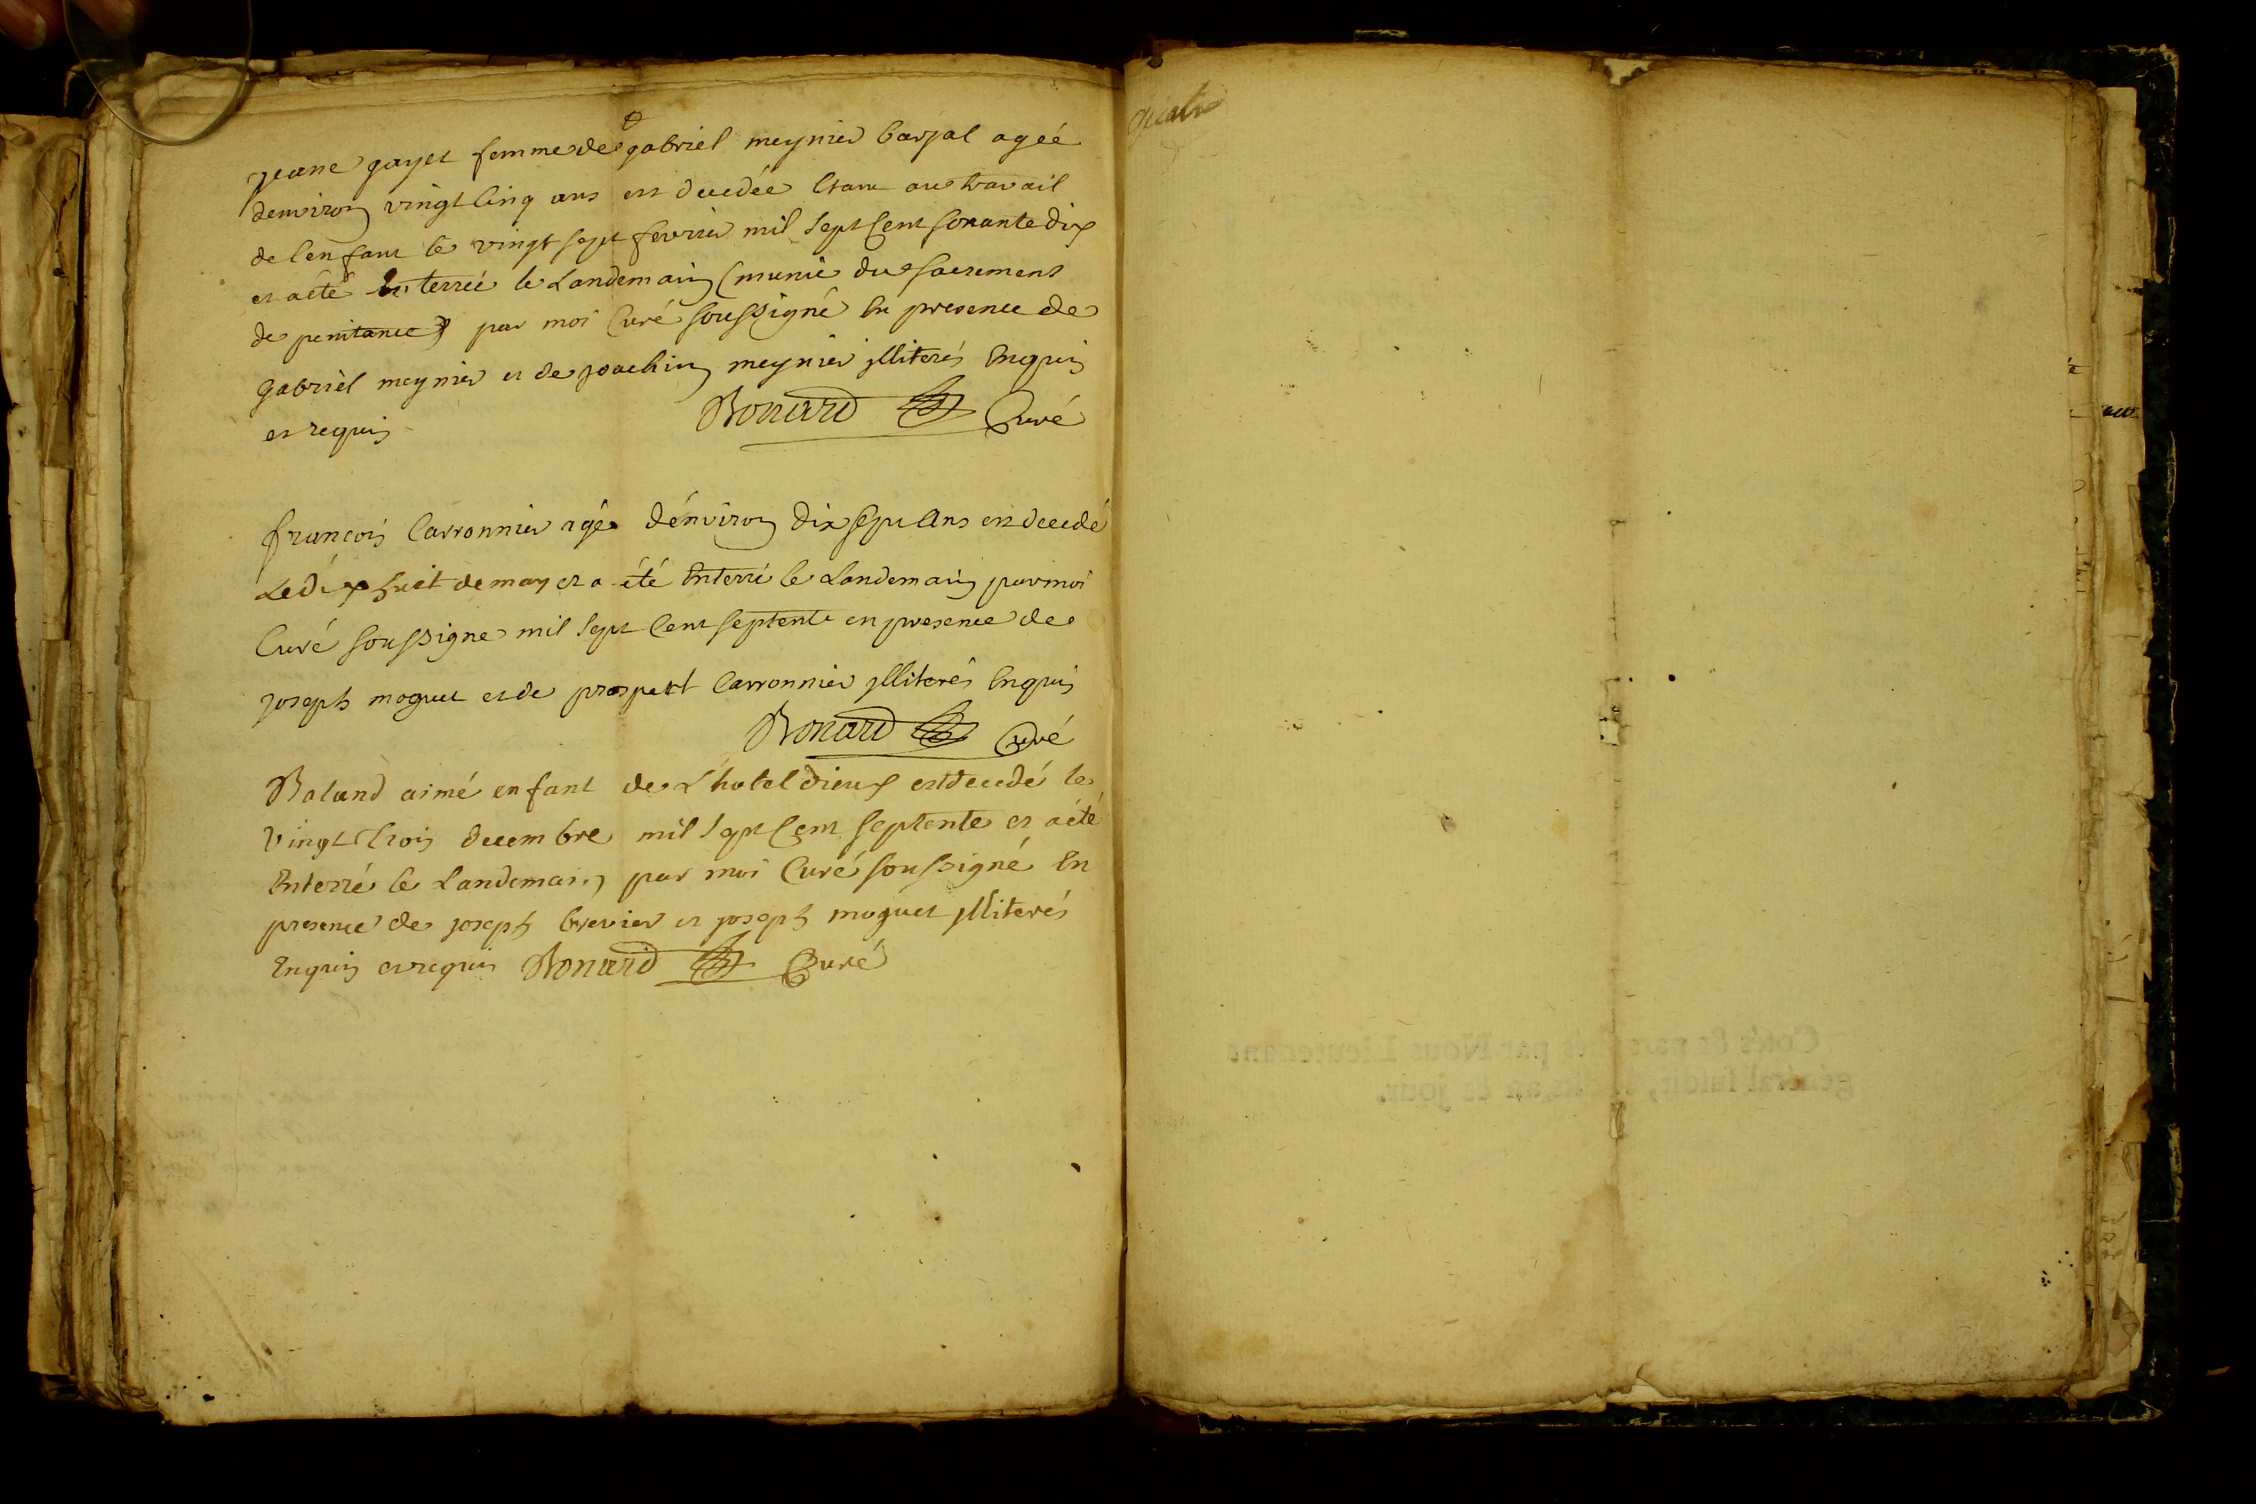 jeane gayet femme de gabriel meynier barjal ageé
denviron vingt cinq ans est decedée etant au travail
de lenfant le vingt sept fevrier mil sept cent soixante dix
et a été enterrée le landemain (munie du sacrement
de penitance) par moi curé soussigné en presence de
gabriel meynier et de joachim meynier jlliterés enquis
et requis Bonard Curé
françois carronnier agé dénviron dix sept ans est decedé
le dix huit de may et a été enterré le landemain par moi
curé soussigne mil sept cent septente en presence de
joseph moguet et de prospert carronnier jlliterés enquis
Bonard Curé
Baland aimé enfant de l'hotel dieux est decedé le
vingt trois decembre mil sept cent septente et a été
enterré le landemain par moi curé soussigné en
presence de joseph brevier et joseph moguet jlliterés
enquis et requis Bonard Curé
quatre
Cotés & par Nous Lieutenant
général susdit, an & jour.